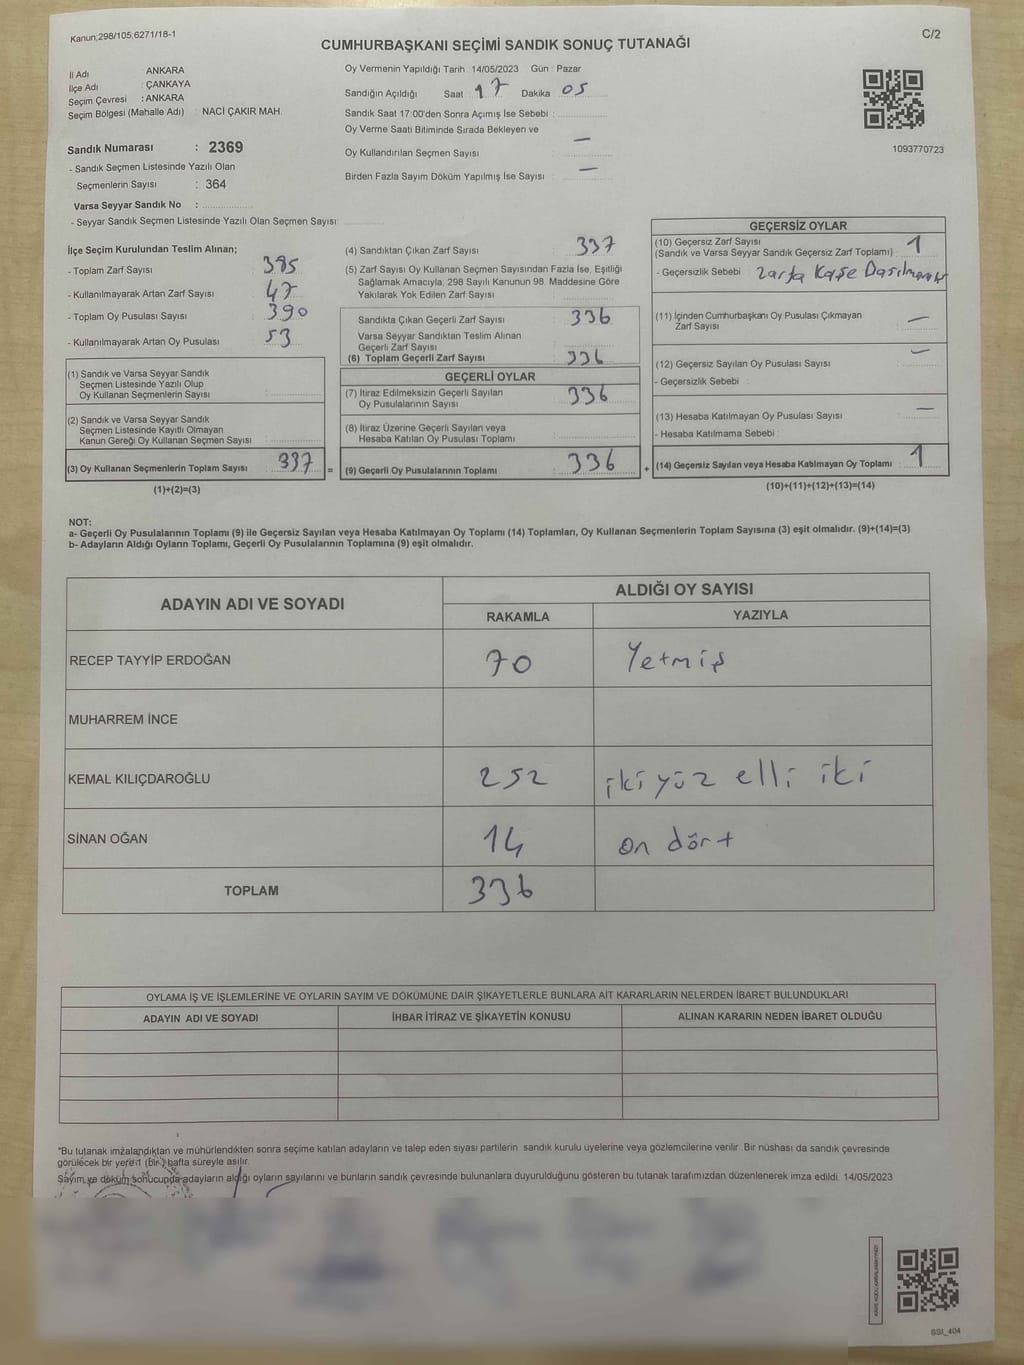 Kanun;298/105,6271/18-1
C/2
CUMHURBAŞKANI SEÇİMİ SANDIK SONUÇ TUTANAĞI
İl Adı : ANKARA
İlçe Adı : ÇANKAYA
Seçim Çevresi : ANKARA
Seçim Bölgesi (Mahalle Adı) : NACİ ÇAKIR MAH.
Sandık Numarası : 2369
- Sandık Seçmen Listesinde Yazılı Olan
Seçmenlerin Sayısı : 364
Varsa Seyyar Sandık No :
- Seyyar Sandık Seçmen Listesinde Yazılı Olan Seçmen Sayısı:
Oy Vermenin Yapıldığı Tarih : 14/05/2023 Gün : Pazar
Sandığın Açıldığı Saat 17 Dakika 05
Sandık Saat 17:00'den Sonra Açımış İse Sebebi :
Oy Verme Saati Bitiminde Sırada Bekleyen ve
Oy Kullandırılan Seçmen Sayısı : —
Birden Fazla Sayım Döküm Yapılmış İse Sayısı : —
1093770723
İlçe Seçim Kurulundan Teslim Alınan;
- Toplam Zarf Sayısı : 385
- Kullanılmayarak Artan Zarf Sayısı : 47
- Toplam Oy Pusulası Sayısı : 390
- Kullanılmayarak Artan Oy Pusulası : 53
(1) Sandık ve Varsa Seyyar Sandık
Seçmen Listesinde Yazılı Olup
Oy Kullanan Seçmenlerin Sayısı :
(2) Sandık ve Varsa Seyyar Sandık
Seçmen Listesinde Kayıtlı Olmayan
Kanun Gereği Oy Kullanan Seçmen Sayısı :
(3) Oy Kullanan Seçmenlerin Toplam Sayısı : 337 =
(1)+(2)=(3)
(4) Sandıktan Çıkan Zarf Sayısı : 337
(5) Zarf Sayısı Oy Kullanan Seçmen Sayısından Fazla İse, Eşitliği
Sağlamak Amacıyla, 298 Sayılı Kanunun 98. Maddesine Göre
Yakılarak Yok Edilen Zarf Sayısı :
Sandıkta Çıkan Geçerli Zarf Sayısı : 336
Varsa Seyyar Sandıktan Teslim Alınan
Geçerli Zarf Sayısı :
(6) Toplam Geçerli Zarf Sayısı : 336
GEÇERLİ OYLAR
(7) İtiraz Edilmeksizin Geçerli Sayılan
Oy Pusulalarının Sayısı : 336
(8) İtiraz Üzerine Geçerli Sayılan veya
Hesaba Katılan Oy Pusulası Toplamı :
(9) Geçerli Oy Pusulalarının Toplamı : 336 +
GEÇERSİZ OYLAR
(10) Geçersiz Zarf Sayısı
(Sandık ve Varsa Seyyar Sandık Geçersiz Zarf Toplamı) : 1
- Geçersizlik Sebebi : Zarfa Kaşe
(11) İçinden Cumhurbaşkanı Oy Pusulası Çıkmayan
Zarf Sayısı : —
(12) Geçersiz Sayılan Oy Pusulası Sayısı : —
- Geçersizlik Sebebi :
(13) Hesaba Katılmayan Oy Pusulası Sayısı : —
- Hesaba Katılmama Sebebi :
(14) Geçersiz Sayılan veya Hesaba Katılmayan Oy Toplamı : 1
(10)+(11)+(12)+(13)=(14)
NOT:
a- Geçerli Oy Pusulalarının Toplamı (9) ile Geçersiz Sayılan veya Hesaba Katılmayan Oy Toplamı (14) Toplamları, Oy Kullanan Seçmenlerin Toplam Sayısına (3) eşit olmalıdır. (9)+(14)=(3)
b- Adayların Aldığı Oyların Toplamı, Geçerli Oy Pusulalarının Toplamına (9) eşit olmalıdır.
ADAYIN ADI VE SOYADI
ALDIĞI OY SAYISI
RAKAMLA YAZIYLA
RECEP TAYYİP ERDOĞAN 70 Yetmiş
MUHARREM İNCE
KEMAL KILIÇDAROĞLU 252 iki yüz elli iki
SİNAN OĞAN 14 on dört
TOPLAM 336
OYLAMA İŞ VE İŞLEMLERİNE VE OYLARIN SAYIM VE DÖKÜMÜNE DAİR ŞİKAYETLERLE BUNLARA AİT KARARLARIN NELERDEN İBARET BULUNDUKLARI
ADAYIN ADI VE SOYADI İHBAR İTİRAZ VE ŞİKAYETİN KONUSU ALINAN KARARIN NEDEN İBARET OLDUĞU
*Bu tutanak imzalandıktan ve mühürlendikten sonra seçime katılan adayların ve talep eden siyasi partilerin sandık kurulu üyelerine veya gözlemcilerine verilir. Bir nüshası da sandık çevresinde
görülecek bir yere 1 (Bir) hafta süreyle asılır.
Sayım ve döküm sonucunda adayların aldığı oyların sayılarını ve bunların sandık çevresinde bulunanlara duyurulduğunu gösteren bu tutanak tarafımızdan düzenlenerek imza edildi. 14/05/2023
SSI_404